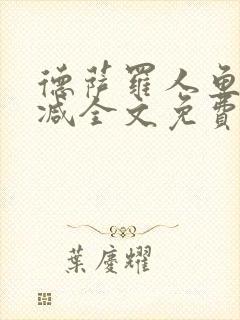 德薩羅人魚
减全文免費
葉慶耀